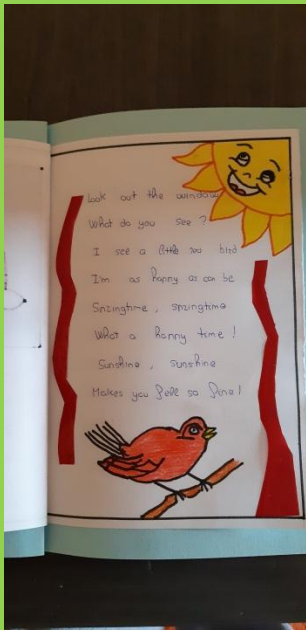 Look out the window
What do you see ?
I see a little red bird
I'm as happy as can be
Springtime , springtime
What a happy time !
Sunshine , sunshine
Makes you feel so fine !